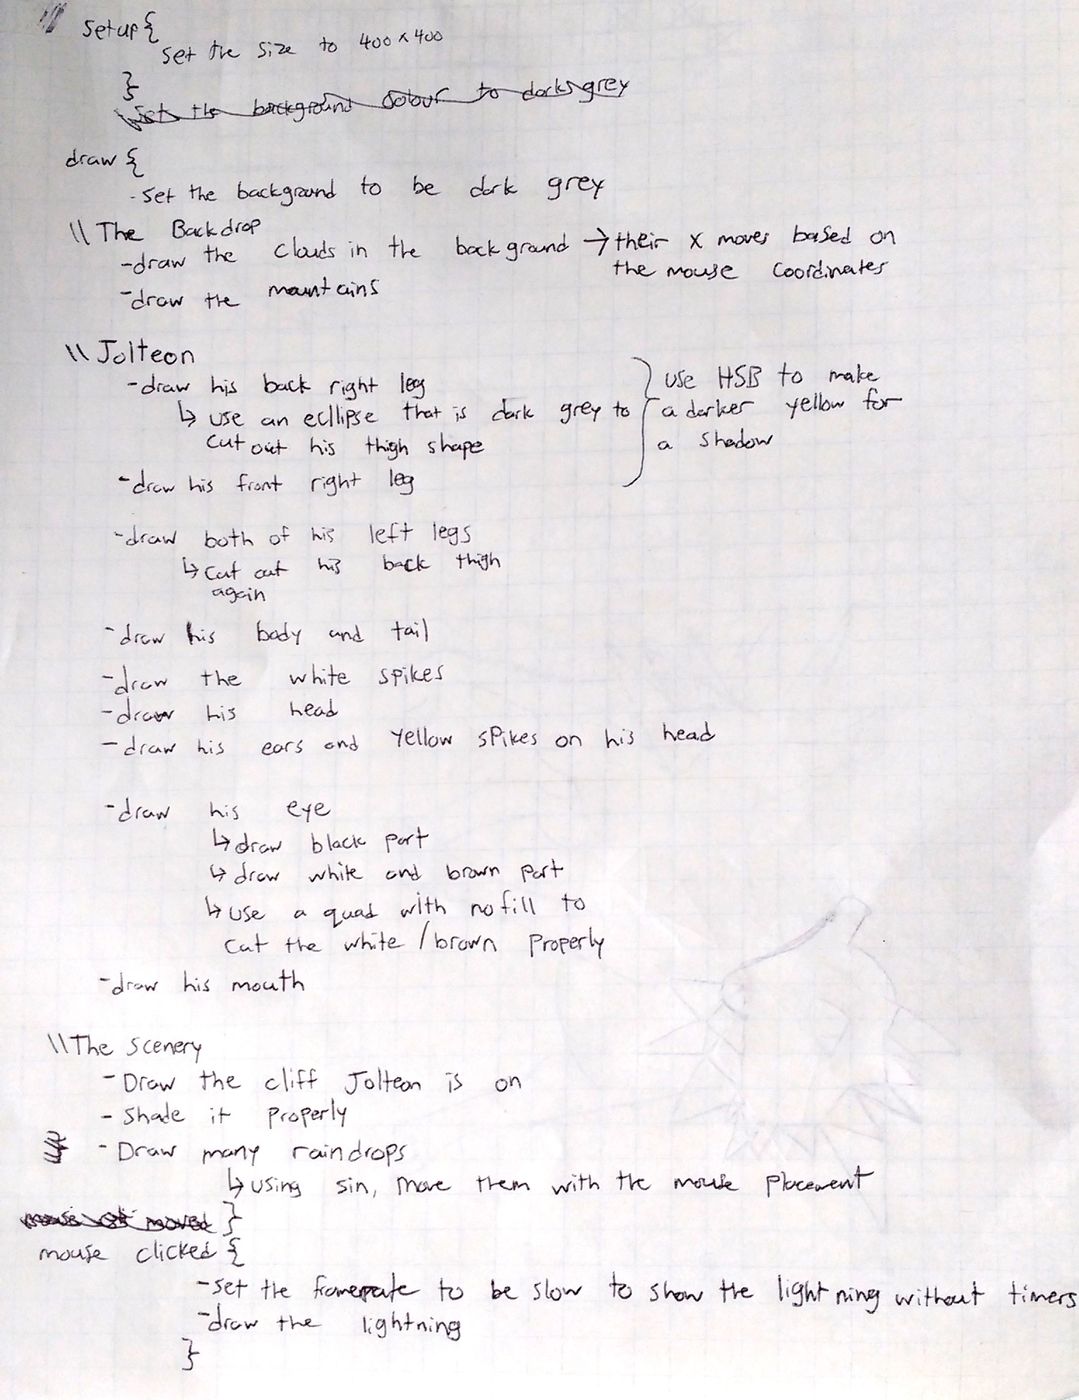 setup{
set the size to 400x400
}
Set the background colour to dark grey
draw {
-set the background to be dark grey
\\ The Backdrop
-draw the clouds in the background → their x moves based on
the mouse coordinates
-draw the mountains
\\ Jolteon
-draw his back right leg
↳ use an ecllipse that is dark grey to
cut out his thigh shape
-draw his front right leg
} use HSB to make
a darker yellow for
a shadow
-draw both of his left legs
↳ cut out his back thigh
again
-draw his body and tail
-draw the white spikes
-draw his head
-draw his ears and yellow spikes on his head
-draw his eye
↳ draw black part
↳ draw white and brown part
↳ use a quad with nofill to
cut the white / brown properly
-draw his mouth
\\ The Scenery
- Draw the cliff Jolteon is on
- Shade it properly
- Draw many raindrops
↳ using sin, move them with the mouse placement
}
mouse clicked {
-set the framerate to be slow to show the lightning without timers
-draw the lightning
}